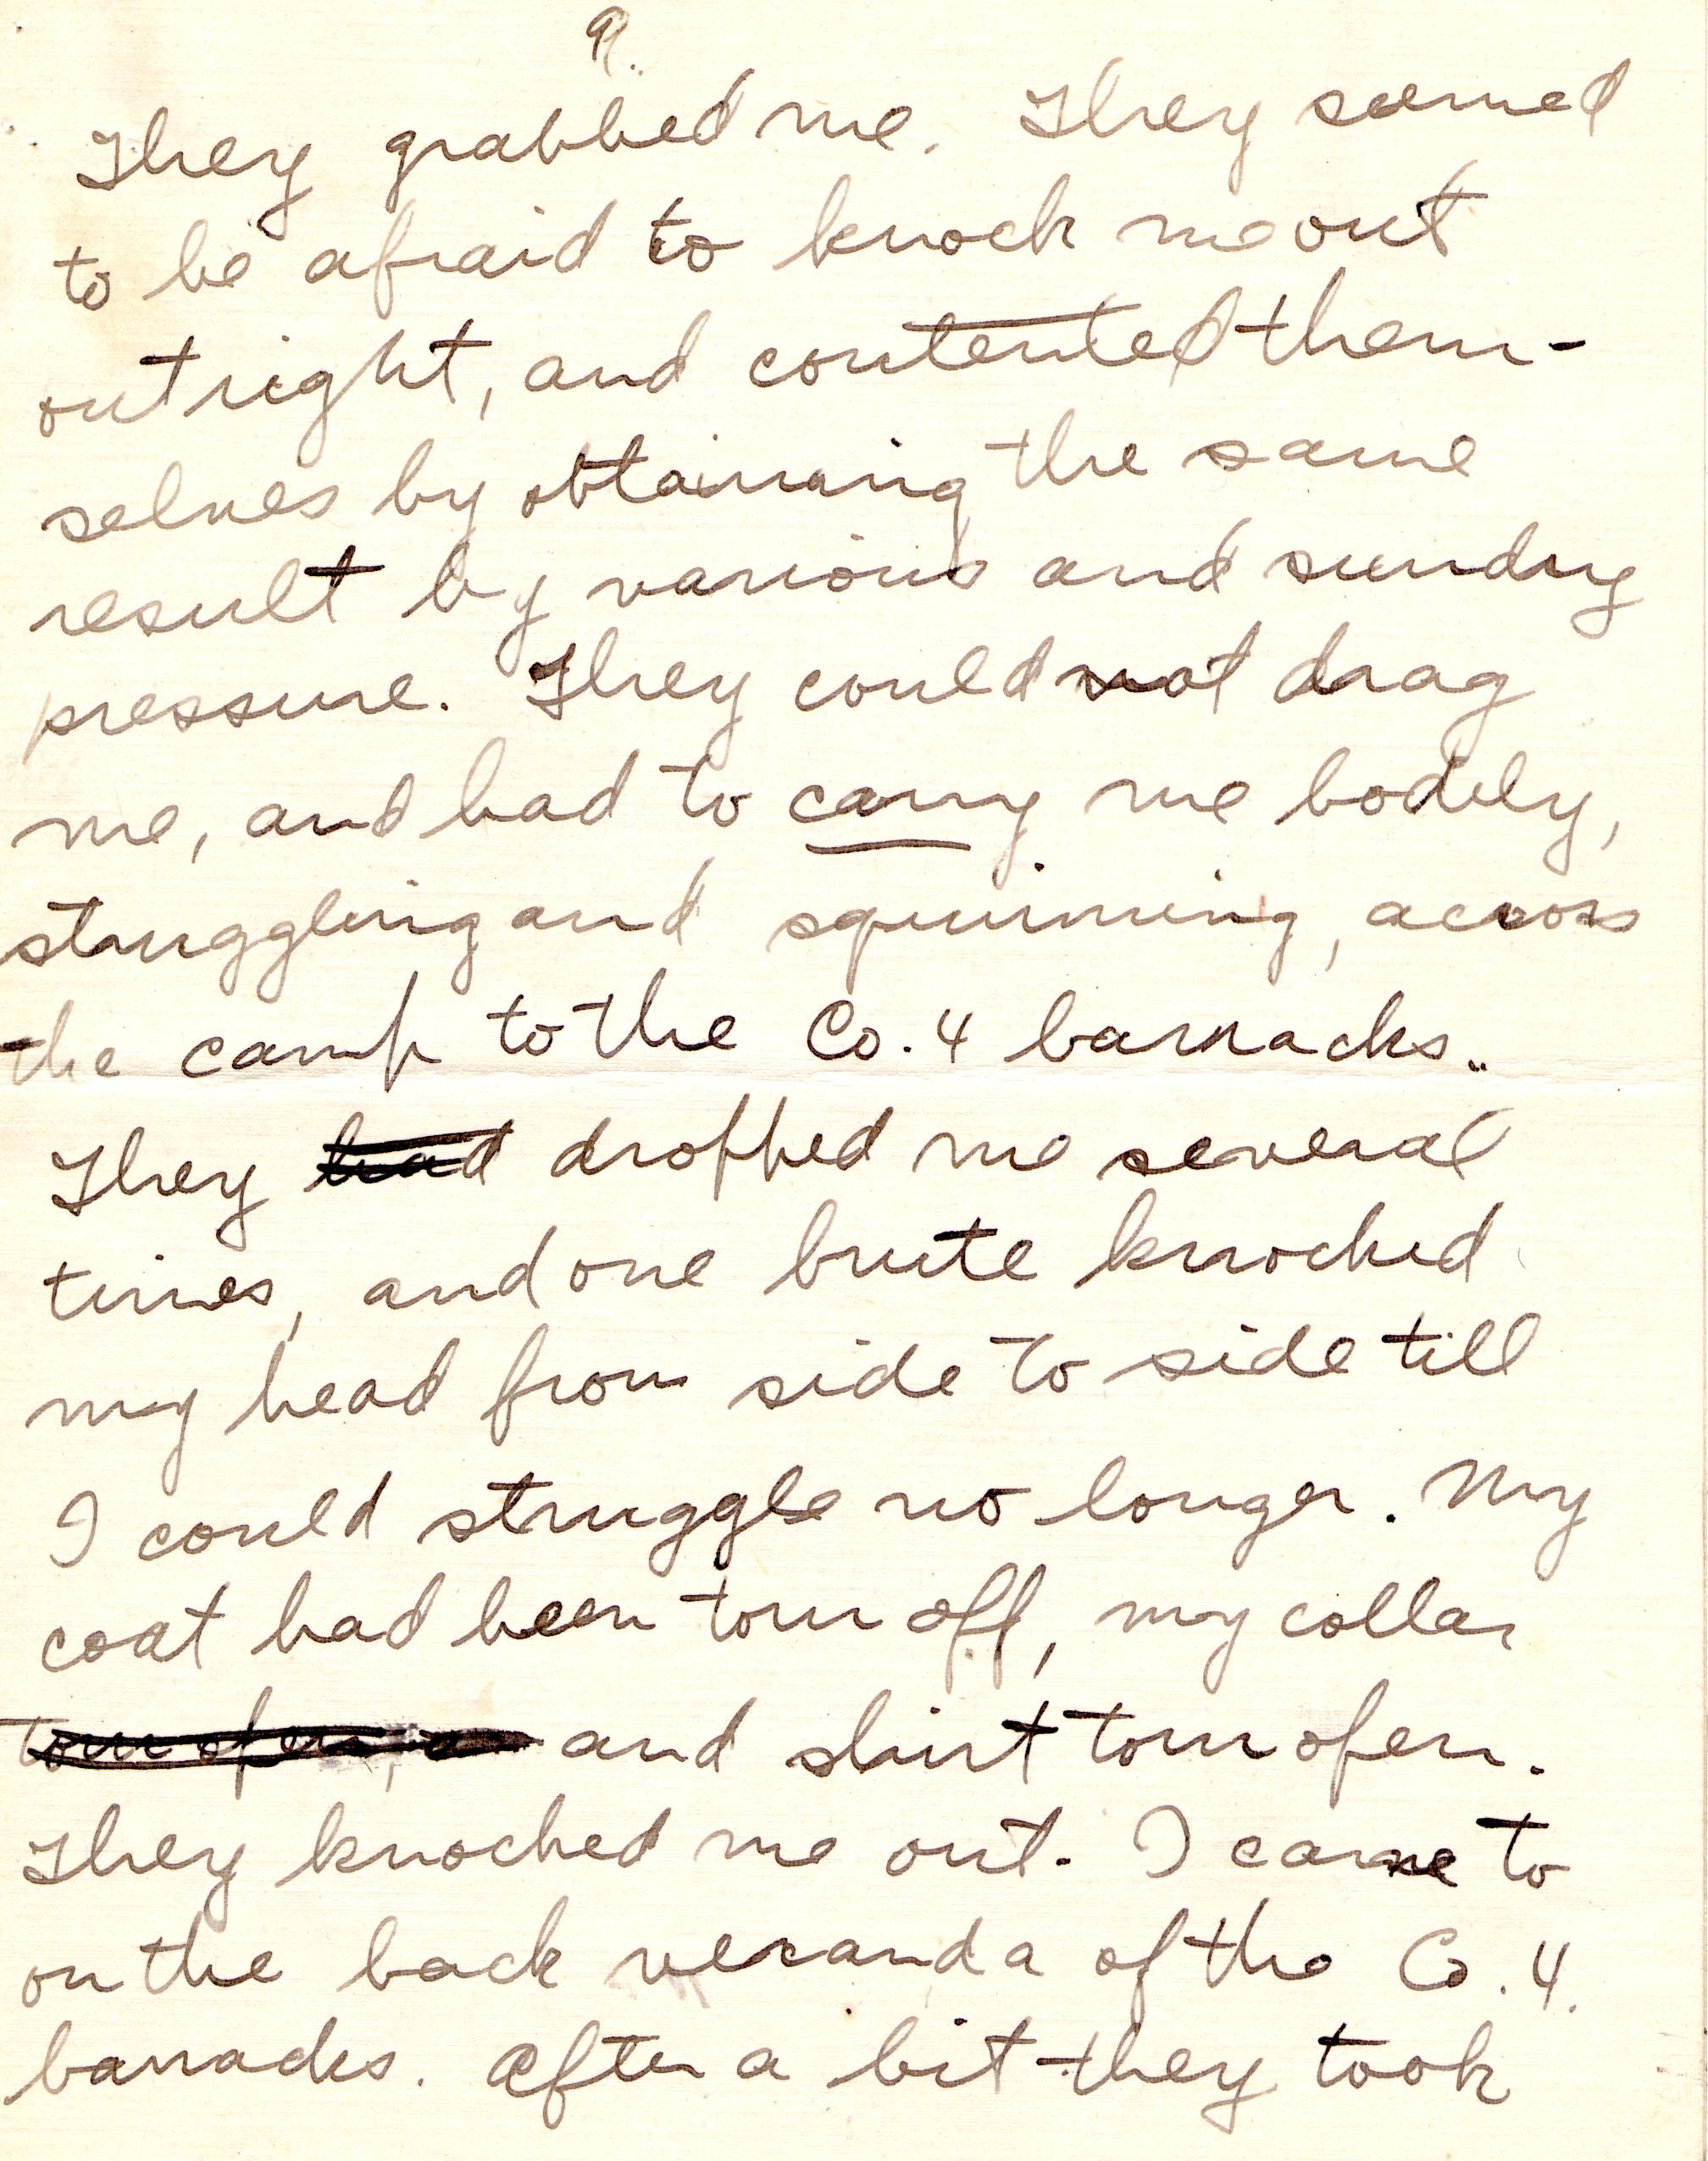 9.
They grabbed me. They seemed
to be afraid to knock me out
outright, and contented them-
selves by obtaining the same
result by various and sundry
pressure. They could not drag
me, and had to carry me bodily,
struggling and squirming, across
the camp to the Co. 4 barracks..
They had dropped me several
times, and one brute knocked
my head from side to side till
I could struggle no longer. My
coat had been torn off, my collar
torn open, a and shirt torn open.
They knocked me out. I came to
on the back veranda of the Co. 4.
barracks. After a bit they took